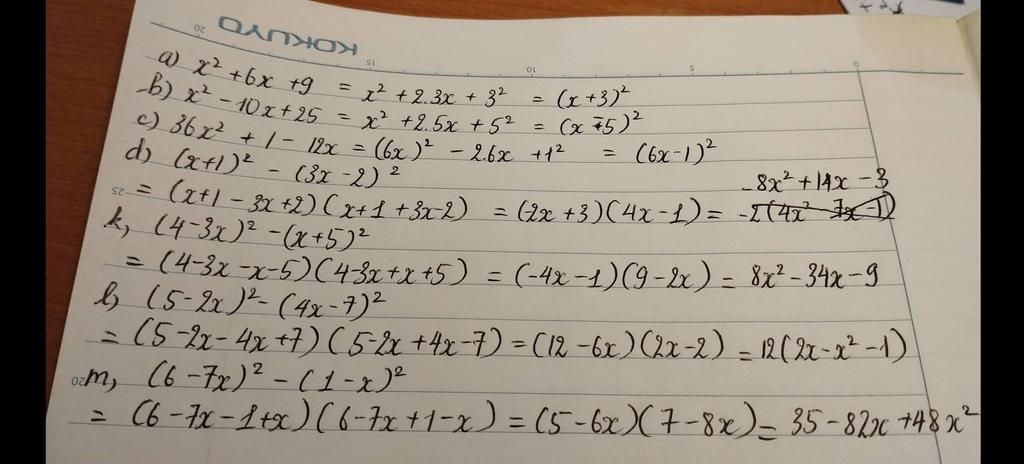 KOKUYO
20 15 10 5 0
a) x² + 6x + 9 = x² + 2.3x + 3² = (x+3)²
b) x² - 10x + 25 = x² + 2.5x + 5² = (x-5)²
c) 36x² + 1 - 12x = (6x)² - 2.6x + 1² = (6x-1)²
d) (x+1)² - (3x-2)²
-8x² + 14x - 3
25
= (x+1-3x+2)(x+1+3x-2) = (2x+3)(4x-1) = -2(4x² 7x-1)
k, (4-3x)² - (x+5)²
= (4-3x-x-5)(4-3x+x+5) = (-4x-1)(9-2x) = 8x² - 34x - 9
l, (5-2x)² - (4x-7)²
= (5-2x-4x+7)(5-2x+4x-7) = (12-6x)(2x-2) = 12(2x-x²-1)
20
m, (6-7x)² - (1-x)²
= (6-7x-1+x)(6-7x+1-x) = (5-6x)(7-8x) = 35-82x+48x²